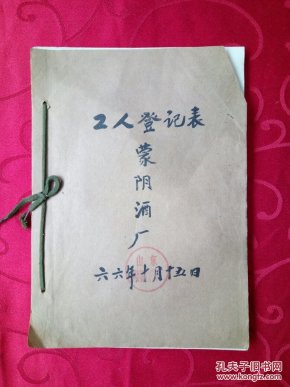 工人登记表
蒙阴酒厂
六六年十月十五日
孔夫子旧书网